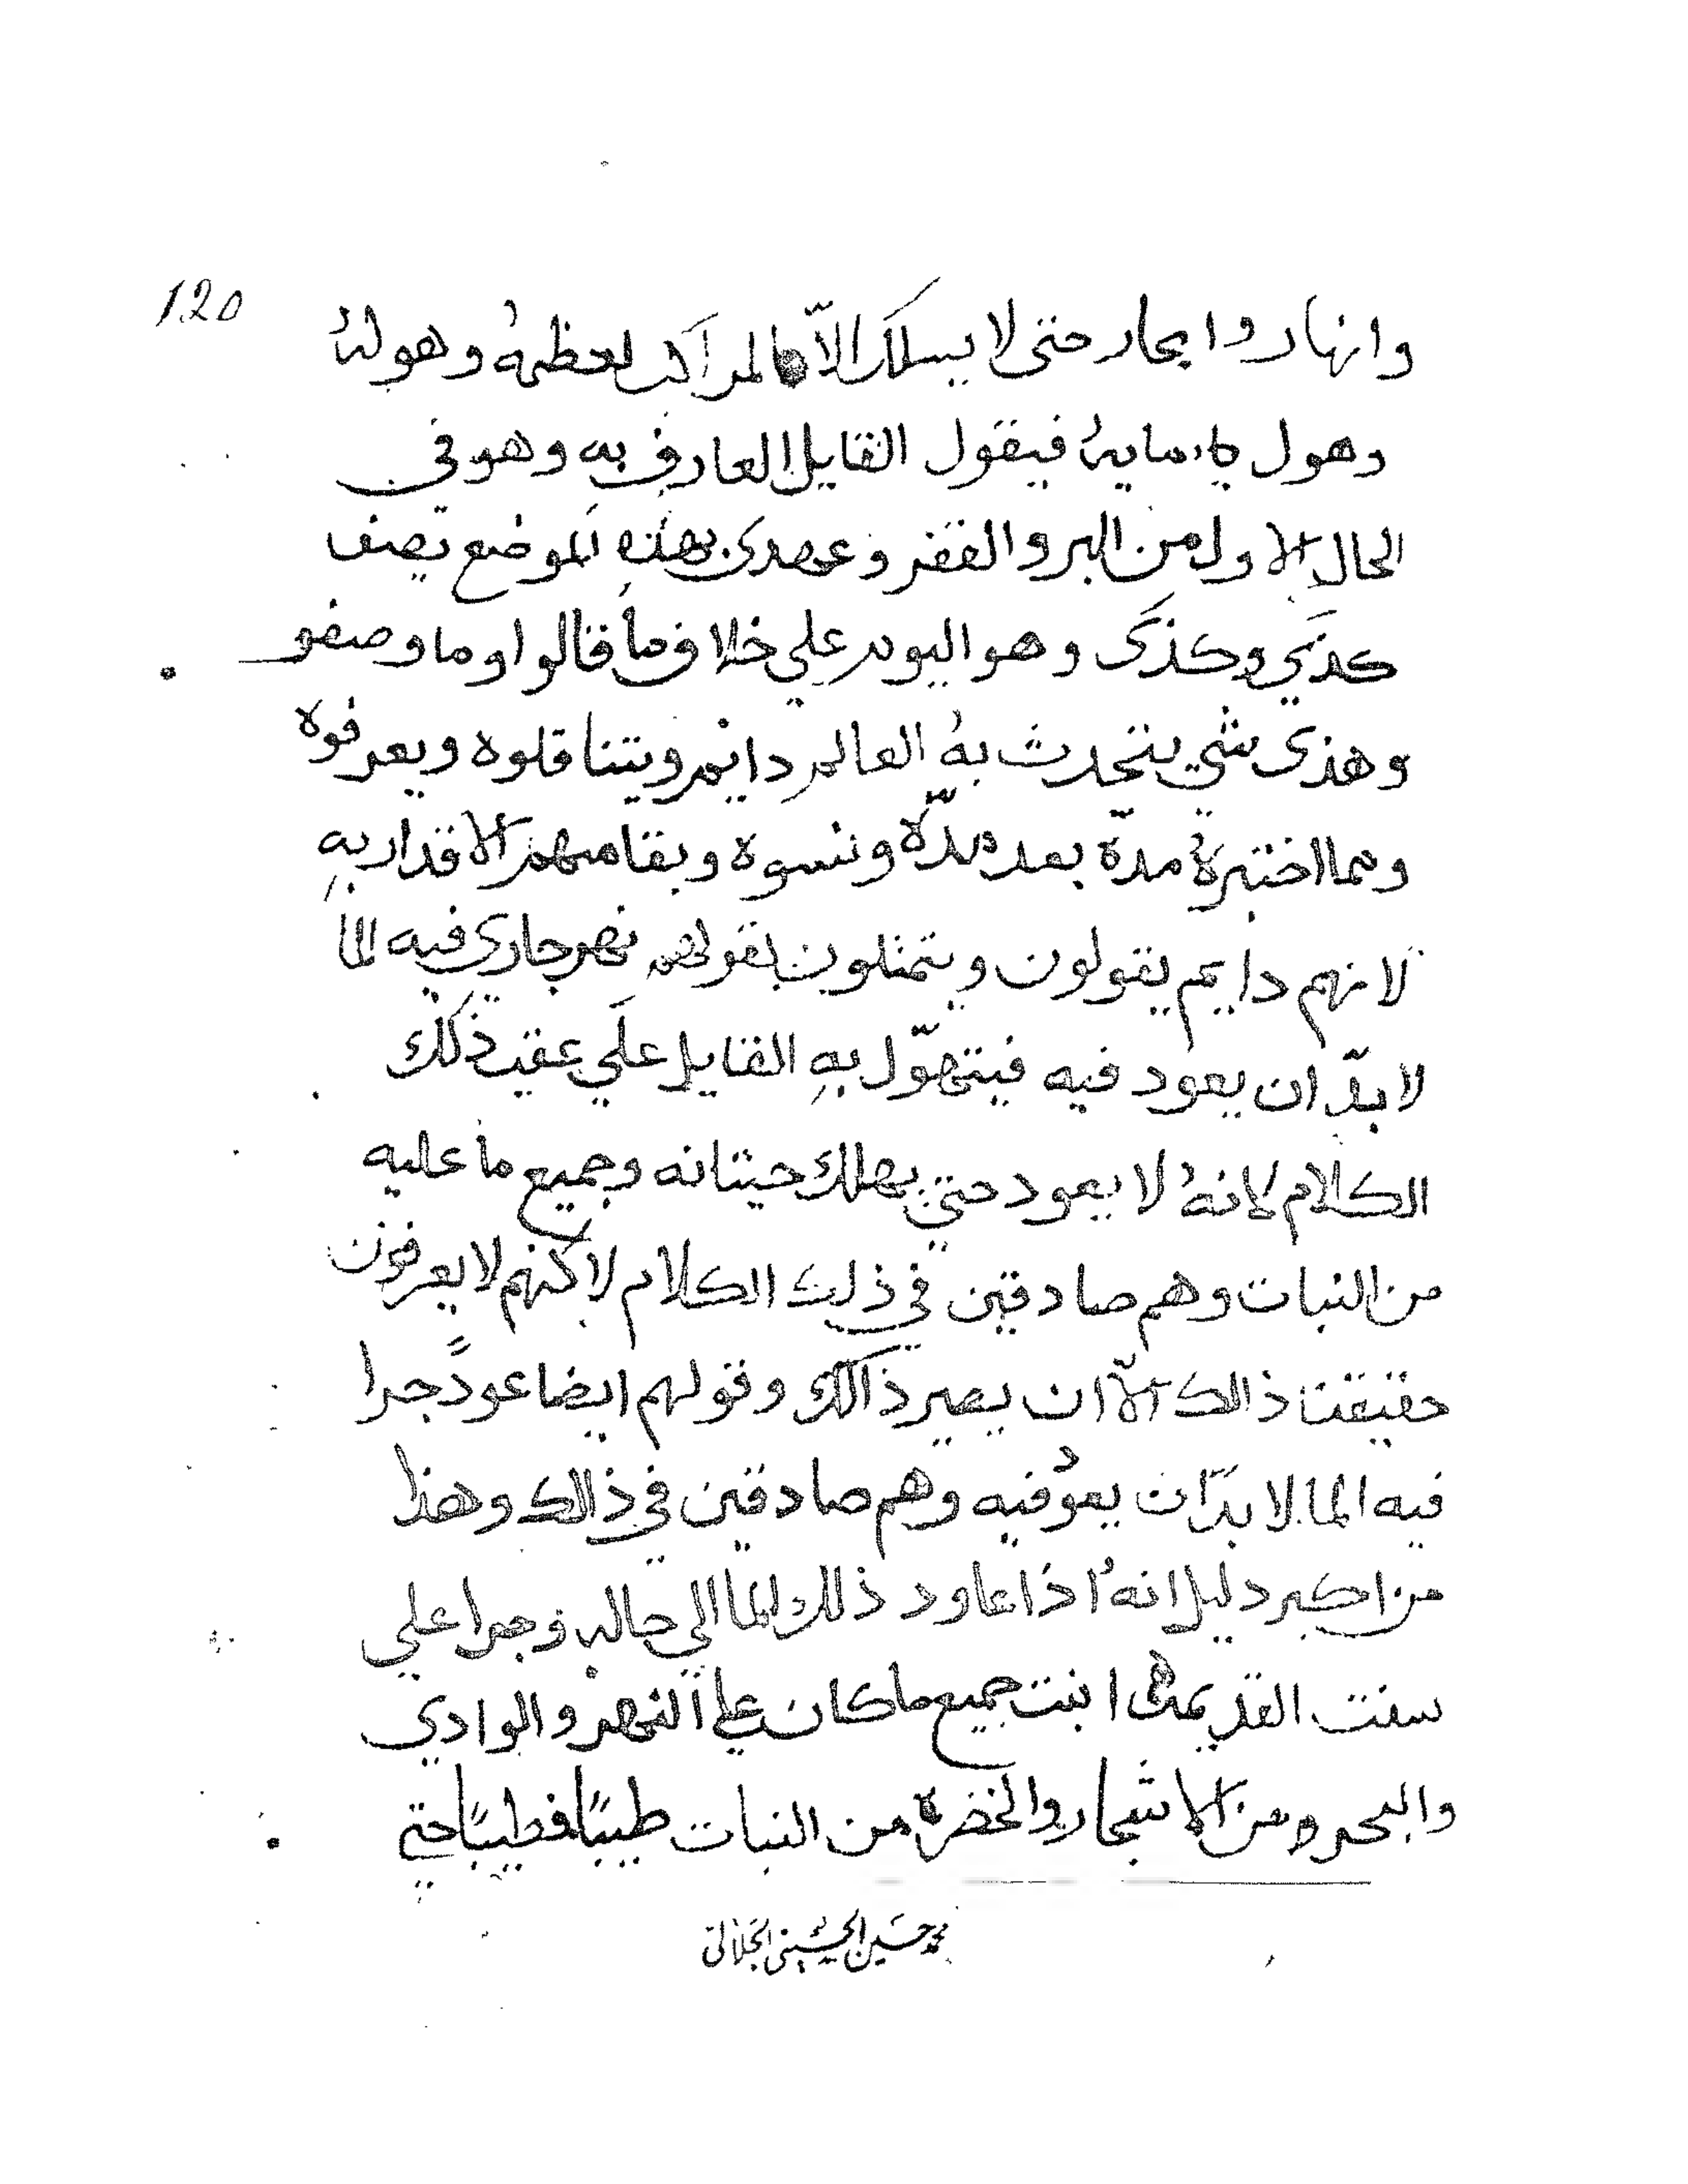 120
وانهار وابحار حتى لا يسلك الّا بالمراكب لعظمهُ وهولهُ
وهول مايهُ فيقول القايل العارف به وهو في
الحال الاول من البر والقفر وعهدى بهذه الموضع يصف
كذي وكذى وهو اليوم علي خلاف ما قالوا وما وصفو
وهذى شي يتحدث بهُ العالم دايم ويتناقلوه ويعرفوه
ومما اختبرهُ مدّة بعد مدّة وننسوه وبقا معهم الاقدار به
لانهم دايم يقولون ويتمثلون بقولهم نهر جاري فيه الما
لا بدّ ان يعود فيه فيتهوّل بهِ القايل علَي عقيب ذلك
الكلام لانهُ لا يعود حتي يهلك حيتانه وجميع ما عليه
من النبات وهم صادقين في ذلك الكلام لاكنهم لا يعرفون
حقيقتا ذالك الّا ان يصير ذالك وقولهم ايضا عودً جرا
فيه الما لا بدّ ان يعود فيه وهم صادقين في ذالك وهذا
من اكبر دليل انهُ اذا عاود ذلك الما الي حاله وجرا علي
سنت القديمه انبت جميع ما كان علي النهر والوادي
والبحر ومن الاشجار والخضرة من النبات طيبًا فطيبًا حتي
محمد حسين الحسيني الجلالي